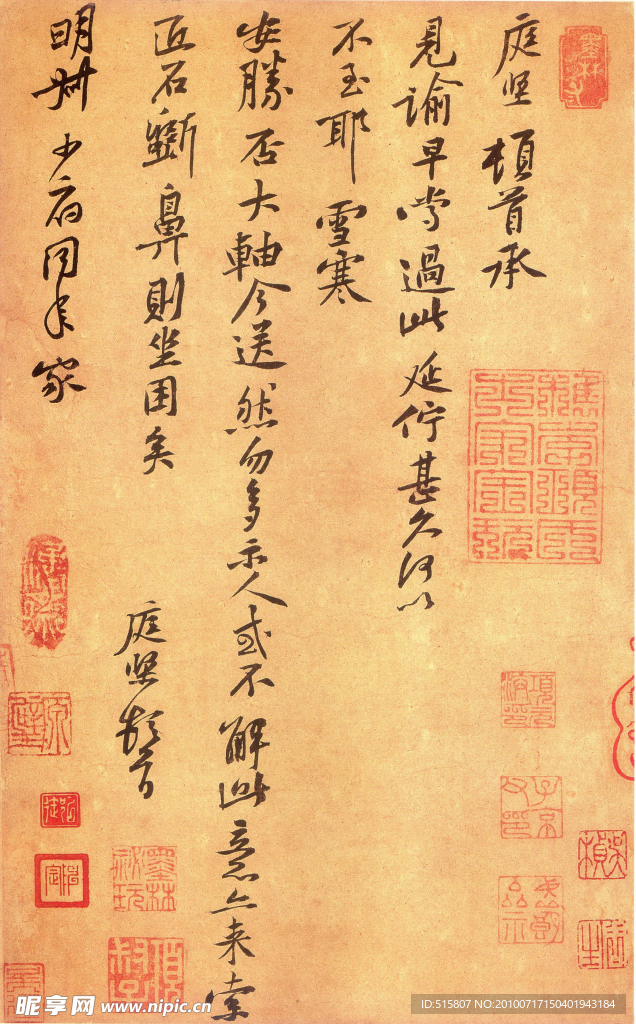 庭堅頓首承
見諭早嘗過此延佇甚久何以
不至耶雪寒
安勝否大軸今送然勿多示人或不解此意亦来索
匠石斵鼻則坐困矣
庭堅頓首
明州少府同年家
墨林
項元
子京
墨林
昵享网 www.nipic.cn
ID:515807 NO:20100717150401943184